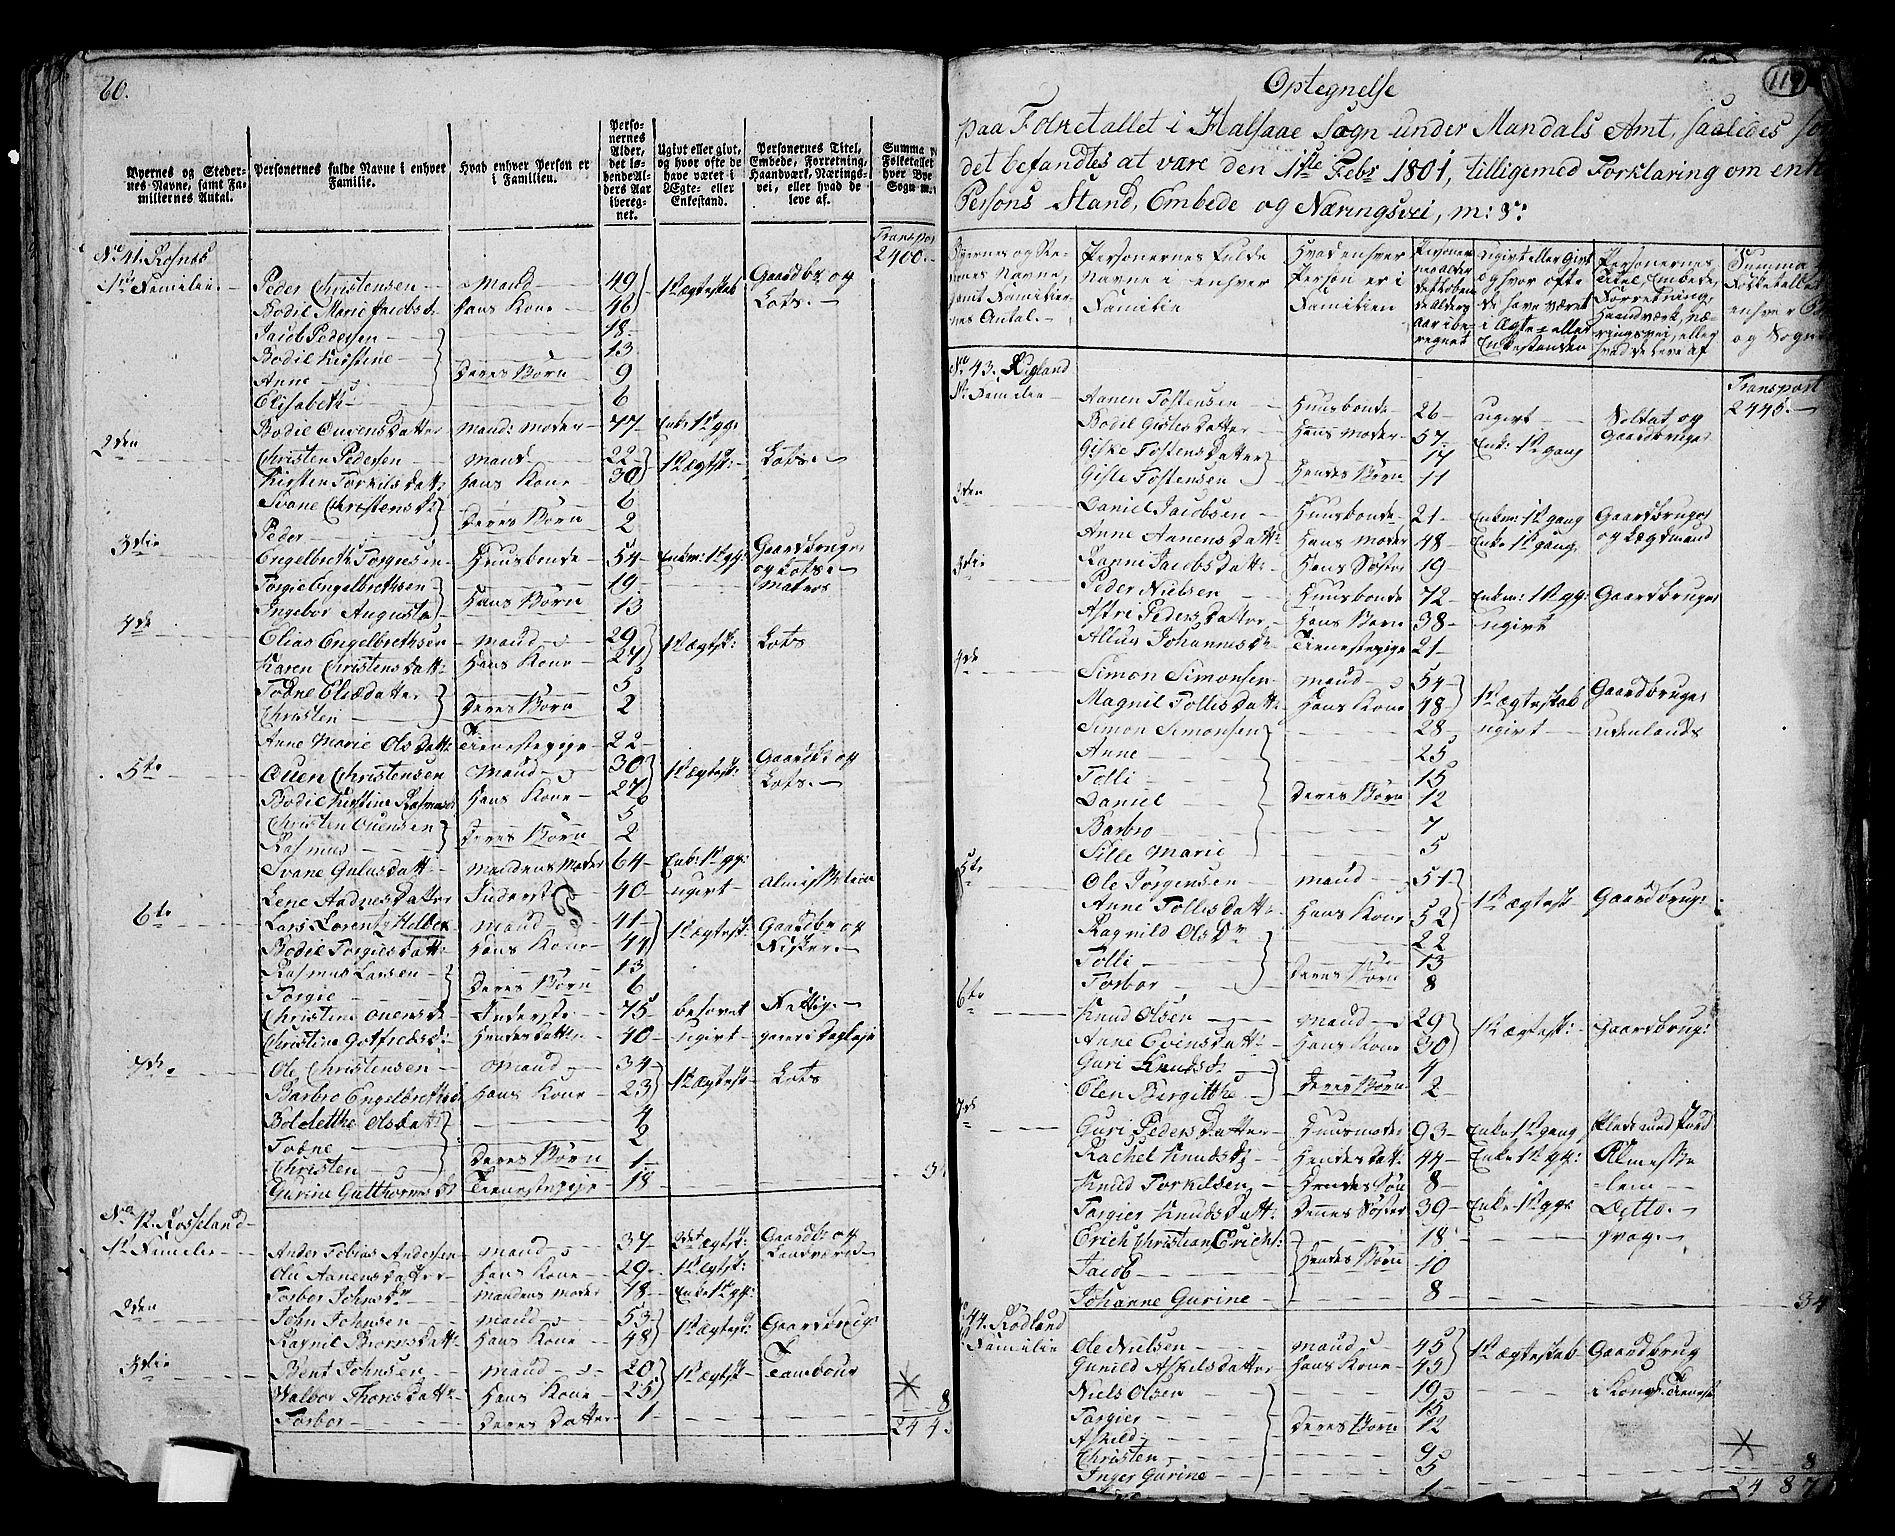 60.
Byernes og Steder-
nes Navne, samt Fa-
miliernes Antal.
Personernes fulde Navne i enhver
Familie.
Hvad enhver Person er
i Familien.
Perso-
nernes
Alder,
det lø-
bende Al-
ders Aar
iberreg-
net.
Ugivt eller givt,
og hvor ofte de
have været i
Ægte- eller
Enkestand.
Personernes Titel,
Embede, Forretning,
Haandværk, Nærings-
vei, eller hvad de
leve af.
Summa
Folketallet
hver Bye
Sogn m.
Transport
2400.
No 41. Rosnæs
1te Familie. Peder Christensen Mand 49 1te Ægteskab Gaardbr og
Bodil Marie Jacobsd. Hans Kone 46 Lots.
Jacob Pedersen 18
Bodil Kirstine 13
Anne Deres Børn 9
Elisabeth 6
Bodil Ouvensdatter Mand: Moder 77 Enke 1te gg:
2den Christen Pedersen Mand 22 1te Ægtesk: Lots.
Kirsten Torkilsdatt: Hans Kone 30
Svane Christensd: 6
Peder Deres Børn 2
3die Engelbreth Torgiusen Huusbonde 54 Enkem: 1te gg: Gaardbruger
og Lots
Torgie Engelbrethsen 19 Matros
Ingebor Augusta Hans Børn 13
4de Elias Engelbrethsen Mand 29 1te Ægtesk: Lots
Karen Christensdatt: Hans Kone 27
Todne Eliædatter 5
Christen Deres Børn 2
Anne Marie Olsdatt: Tienestepige 22
5te Ouen Christensen Mand 30 1te Ægtesk: Gaardb: og
Bodil Kirstine Rasmusd: Hans Kone 27 Lots.
Christen Ouensen 5
Rasmus Deres Børn 2
Svane Gulusdatt: Mandens Moder 64 Enke: 1te gg:
Lene Aadnesdatter Inderste 40 ugivt Almisselem
6te Lars Lorentz Holbek Mand 41 1te Ægtesk: Gaardbr og
Bodil Torgiusdatt: Hans Kone 44 Fisker.
Rasmus Larsen 13
Torgie Deres Børn 6
Christine Ouensd. Inderste 75 besovet Fattig.
Christine Gotfriedsd: Hendes Datter 40 ugivt
7de Ole Christensen Mand 34 1te Ægtesk: Lots
Barbro Engelbrethsd Hans Kone 23
Boldethe Olsdatt: 4
Todne 2
Christen Deres Børn 1
Gurine Gutthormsd: Tienestepige 18
No 42. Rosseland
1te Familie Ander Tobias Andersen Mand 37 2det Ægtesk: Gaardb: og
Olu Aanensdatter Hans Kone 29 1te Ægtsk: Landværn
Torbor Johnsd: Mandens Moder 78 Enke 1te gg:
2den John Johnsen Mand 53 1te Ægtesk: Gaardbrug:
Ragnil Biornsdatt: Hans Kone 48
3die Bent Johnsen Mand 20 1te Ægtesk: Tambour
Valbor Thorisdatt: Hans Kone 25
Torbor Deres Datter 1
8
244
119
Optegnelse
paa Folketallet i Halsaae Sogn under Mandals Amt, saaledes som
det befandtes at være den 1ste Febr 1801, tilligemed Forklaring om enhver
Persons Stand, Embede og Næringsvei, m: v:
Byernes og Ste-
dernes Navne,
samt Familier-
nes Antal.
Personernes Fulde
Navne i enhver
Familie
Hvad enhver
Person er i
Familien
Personer-
nes Alder
det løben-
de Alders
Aar ibe-
regnet
Ugivt eller Givt
og hvor ofte
de have været
i Ægte- eller
Enkestanden
Personernes
Titel, Embede,
Forretning,
Haandværk, Næ-
ringsvei, eller
hvad de leve af
Summa
Folketallet
enhver Bye
og Sogn
Transport
2440.
No 43. Røgland
1te Familie Aanen Tostensen Huusbonde 26 ugivt Soldat og
Bodil Gislesdatter Hans Moder 57 Enke 1te gang Gaardbruger
Giske Tostensdatter 17
Gisle Tostensen Hendes Børn 11
2den Daniel Jacobsen Huusbonde 21 Enkem: 1te gang Gaardbruger
Anne Aanensdatt: Hans Moder 48 Enke 1te gang og Lægdsmand
Hans Søster 19
3die Peder Nielsen Huusbonde 72 Enkem: 1te gg: Gaardbruger
Astri Pedersdatter Hans Børn 38 ugivt
Johannesd: Tienestepige 21
4de Simon Simonsen Mand 54 1te Ægteskab Gaardbruger
Magnil Tollisdatt: Hans Kone 48
Simon Simonsen 28 ugivt udenlands
Anne 25
Tolli 15
Daniel Deres Børn 12
Barbro 7
Sille Marie 5
5te Ole Jørgensen Mand 51 1te Ægtesk: Gaardbrug:
Anne Tollisdatt: Hans Kone 52
Ragnild Olsdr 22
Tolli 13
Torbor Deres Børn 8
6te Knud Olsen Mand 29 1te Ægtesk: Gaardbrug:
Anne Evinsdatt: Hans Kone 30
Guri Knudsd: 4
Olen Birgitthe Deres Børn 2
7de Guri Pedersdatter Huusmoder 93 Enke 1te gang
Rachel Knudsd: Hendes Datt: 44 Enke 1te gg: Almisse
Knud Torkilsen Hendes Søn 8 lem
Torgier Knudsdatt: Dennes Søster 39 Enke 1te gg: Ditto.
Erich Christian Erichs: 18 svag.
Jacob Hendes Børn 10
Johanne Gurine 8
34
44. Rødland
1te Familie Ole Nielsen Mand 45 1te Ægteskab Gaardbrug
Gunild Askilsdatter Hans Kone 45
Niels Olsen 19 i Kongs Tieneste
Torgier 15
Askild Deres Børn 12
Christen 9
Inger Gurine 5
1
8
2487